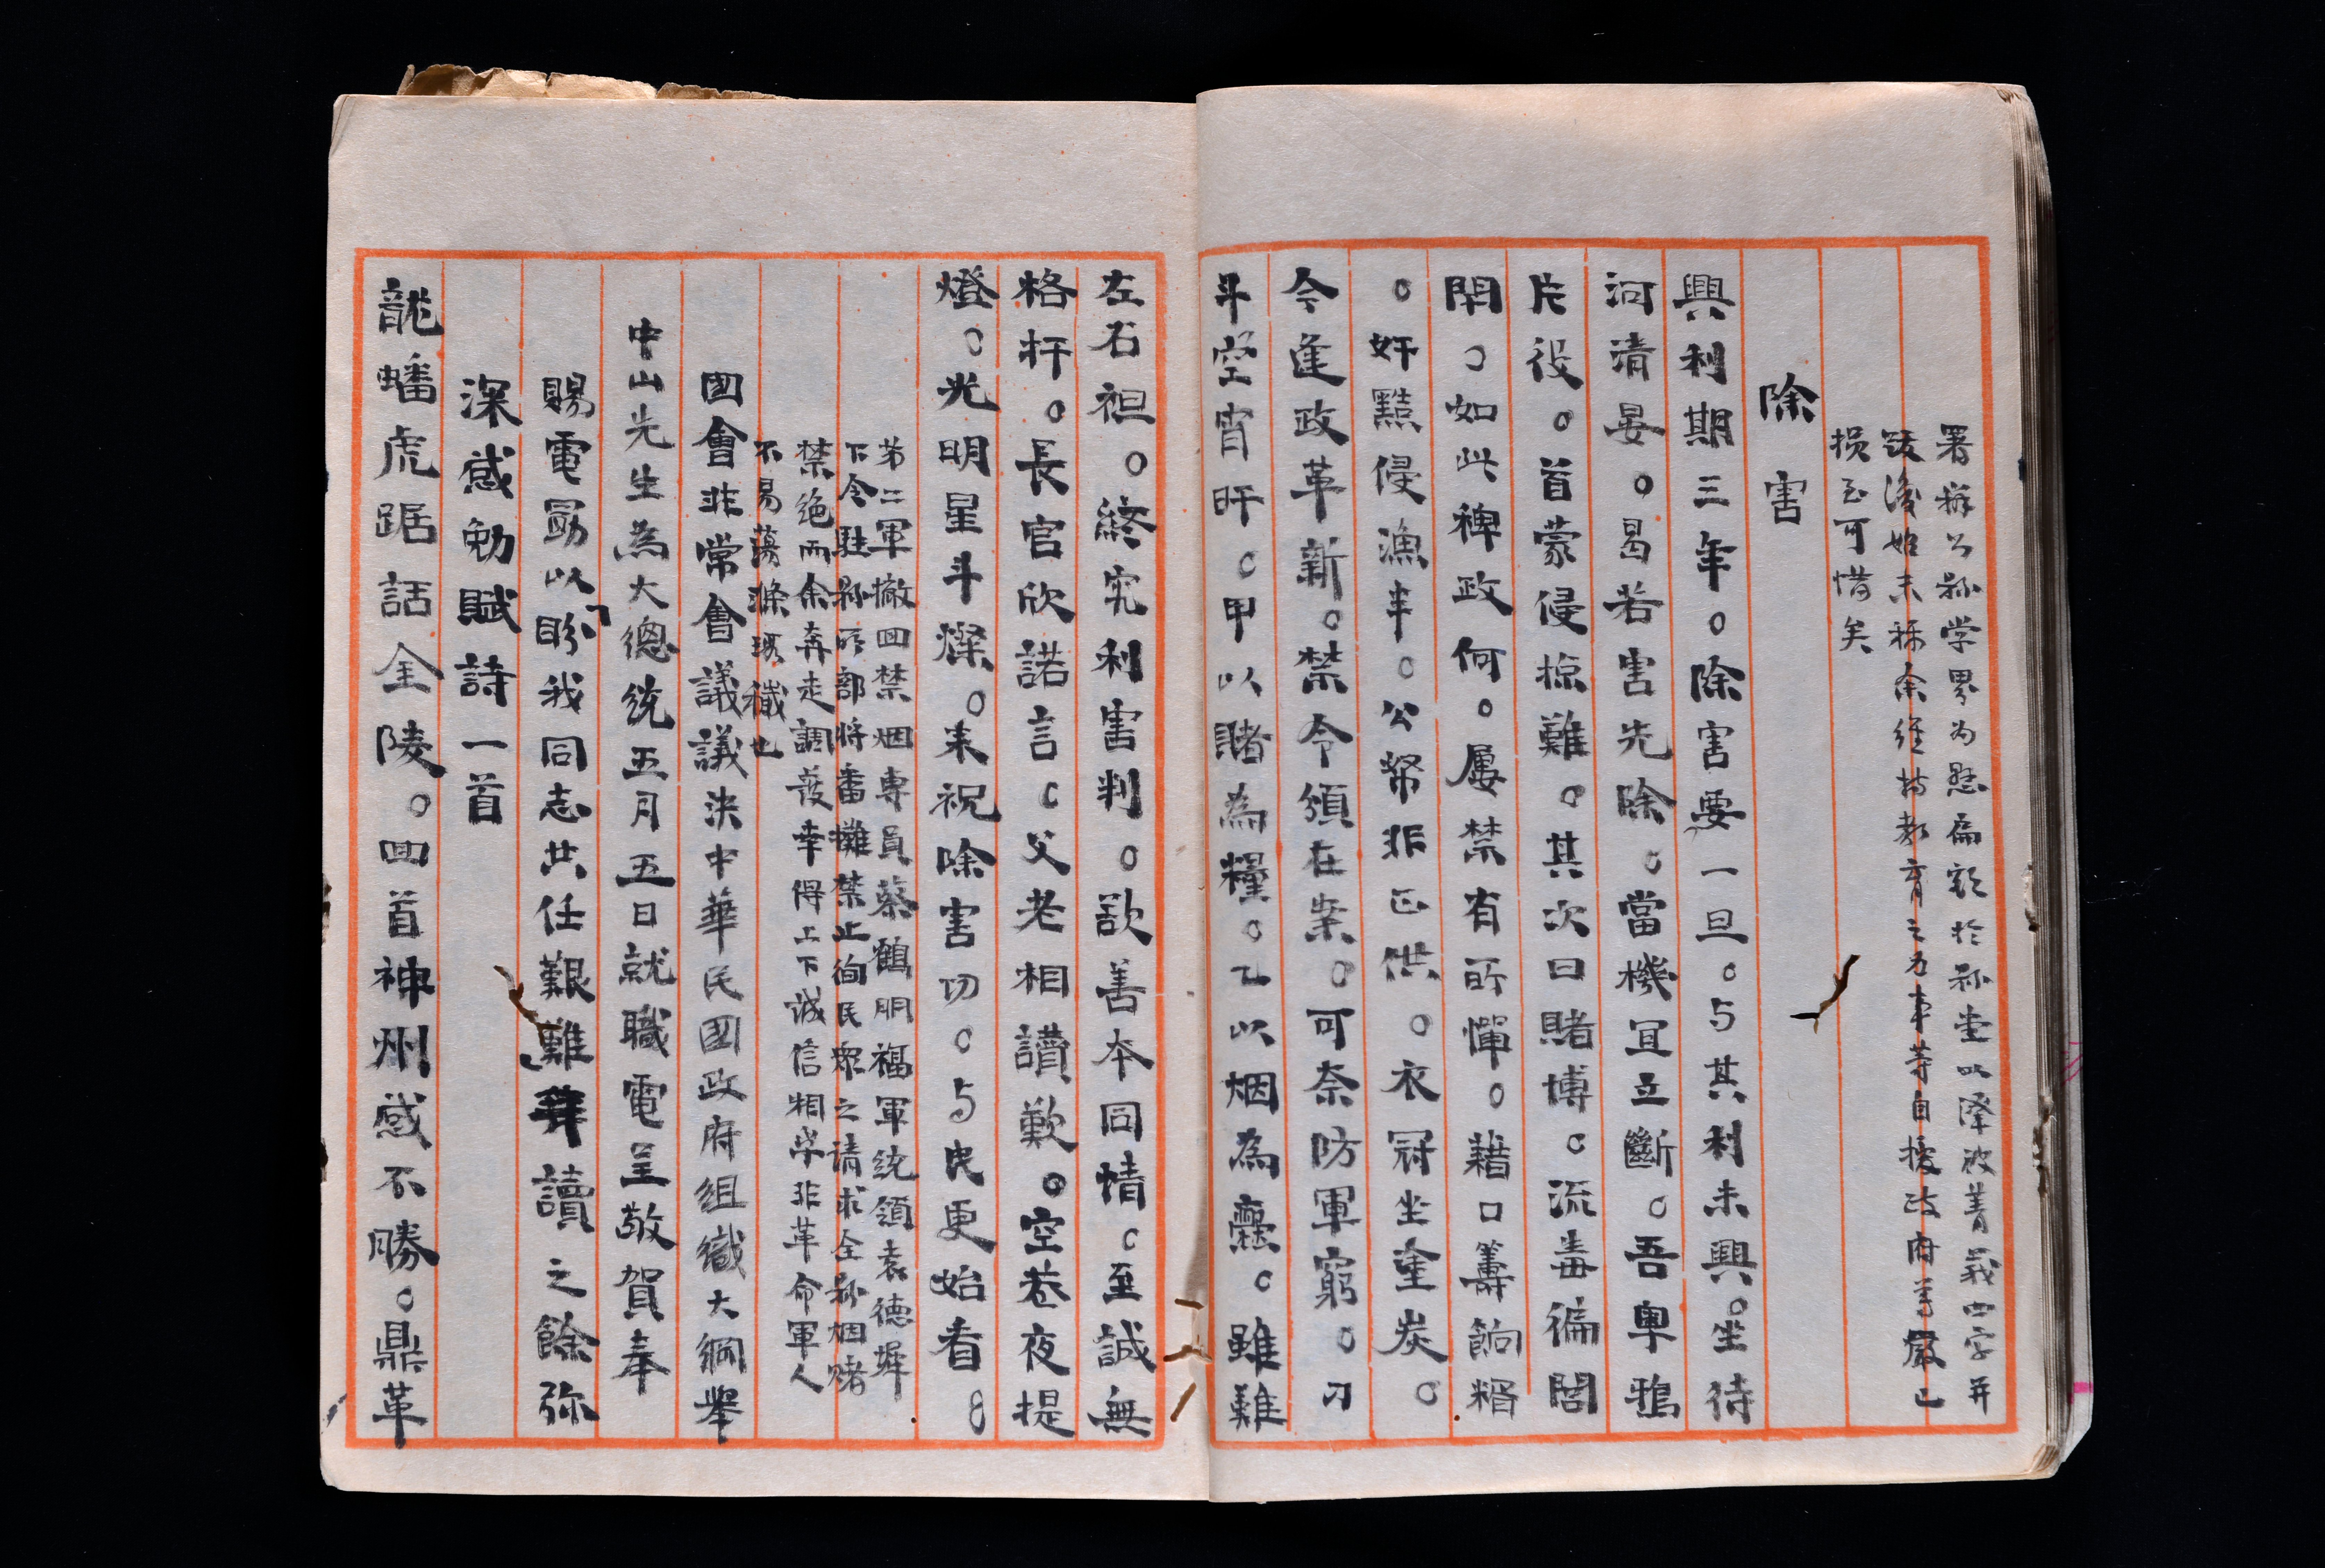 署辦公縣学界为懸扁額於縣堂以澤被菁莪四字并
跋後始末称余維持教育之为事等自援政府等嚴已
损至可惜矣
除害
興利期三年。除害要一旦。与其利未興。坐待
河清晏。曷若害先除。當機宜立斷。吾粤鴉
片役。首蒙侵掠難。其次曰賭博。流毒徧閭
閈。如此稗政何。屢禁有所憚。藉口籌餉糈
。奸黠侵漁半。公帑非正供。衣冠坐塗炭。
今逢政革新。禁令頒在案。可奈防軍窮。刁
斗空宵旰。甲以賭為糧。乙以烟為爨。雖難
左右袒。終究利害判。欲善本同情。至誠無
格扞。長官欣諾言。父老相讀歎。空巷夜提
燈。光明星斗燦。来祝除害功。与民更始看。
第二軍撤回禁烟專員蔡鶴朋福軍統領袁德墀
下令駐縣所部將番攤禁止徇民衆之请求全縣烟赌
禁绝而余奔走調護幸得上下誠信相孚非革命軍人
不易蕩滌瑕穢也
國會非常會議議決中華民國政府組織大綱舉
中山先生為大總统五月五日就職電呈敬賀奉
賜電勗以盼我同志共任艱難拜讀之餘弥
深感勉賦詩一首
龍蟠虎踞話金陵。回首神州感不勝。鼎革